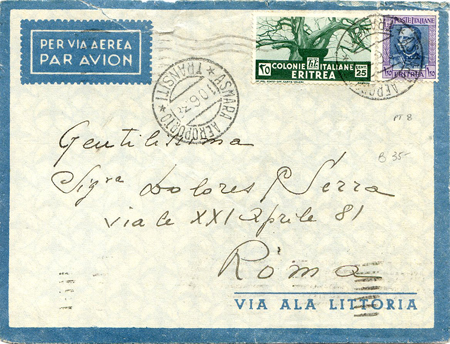 PER VIA AEREA
PAR AVION
ASMARA AEROPORTO
* TRANSITI *
COLONIE ITALIANE
ERITREA
25
POSTE ITALIANE
ERITREA
PT 8
B 35-
Gentilissima
Sigra Dolores Serra
viale XXI Aprile 81
Roma
VIA ALA LITTORIA